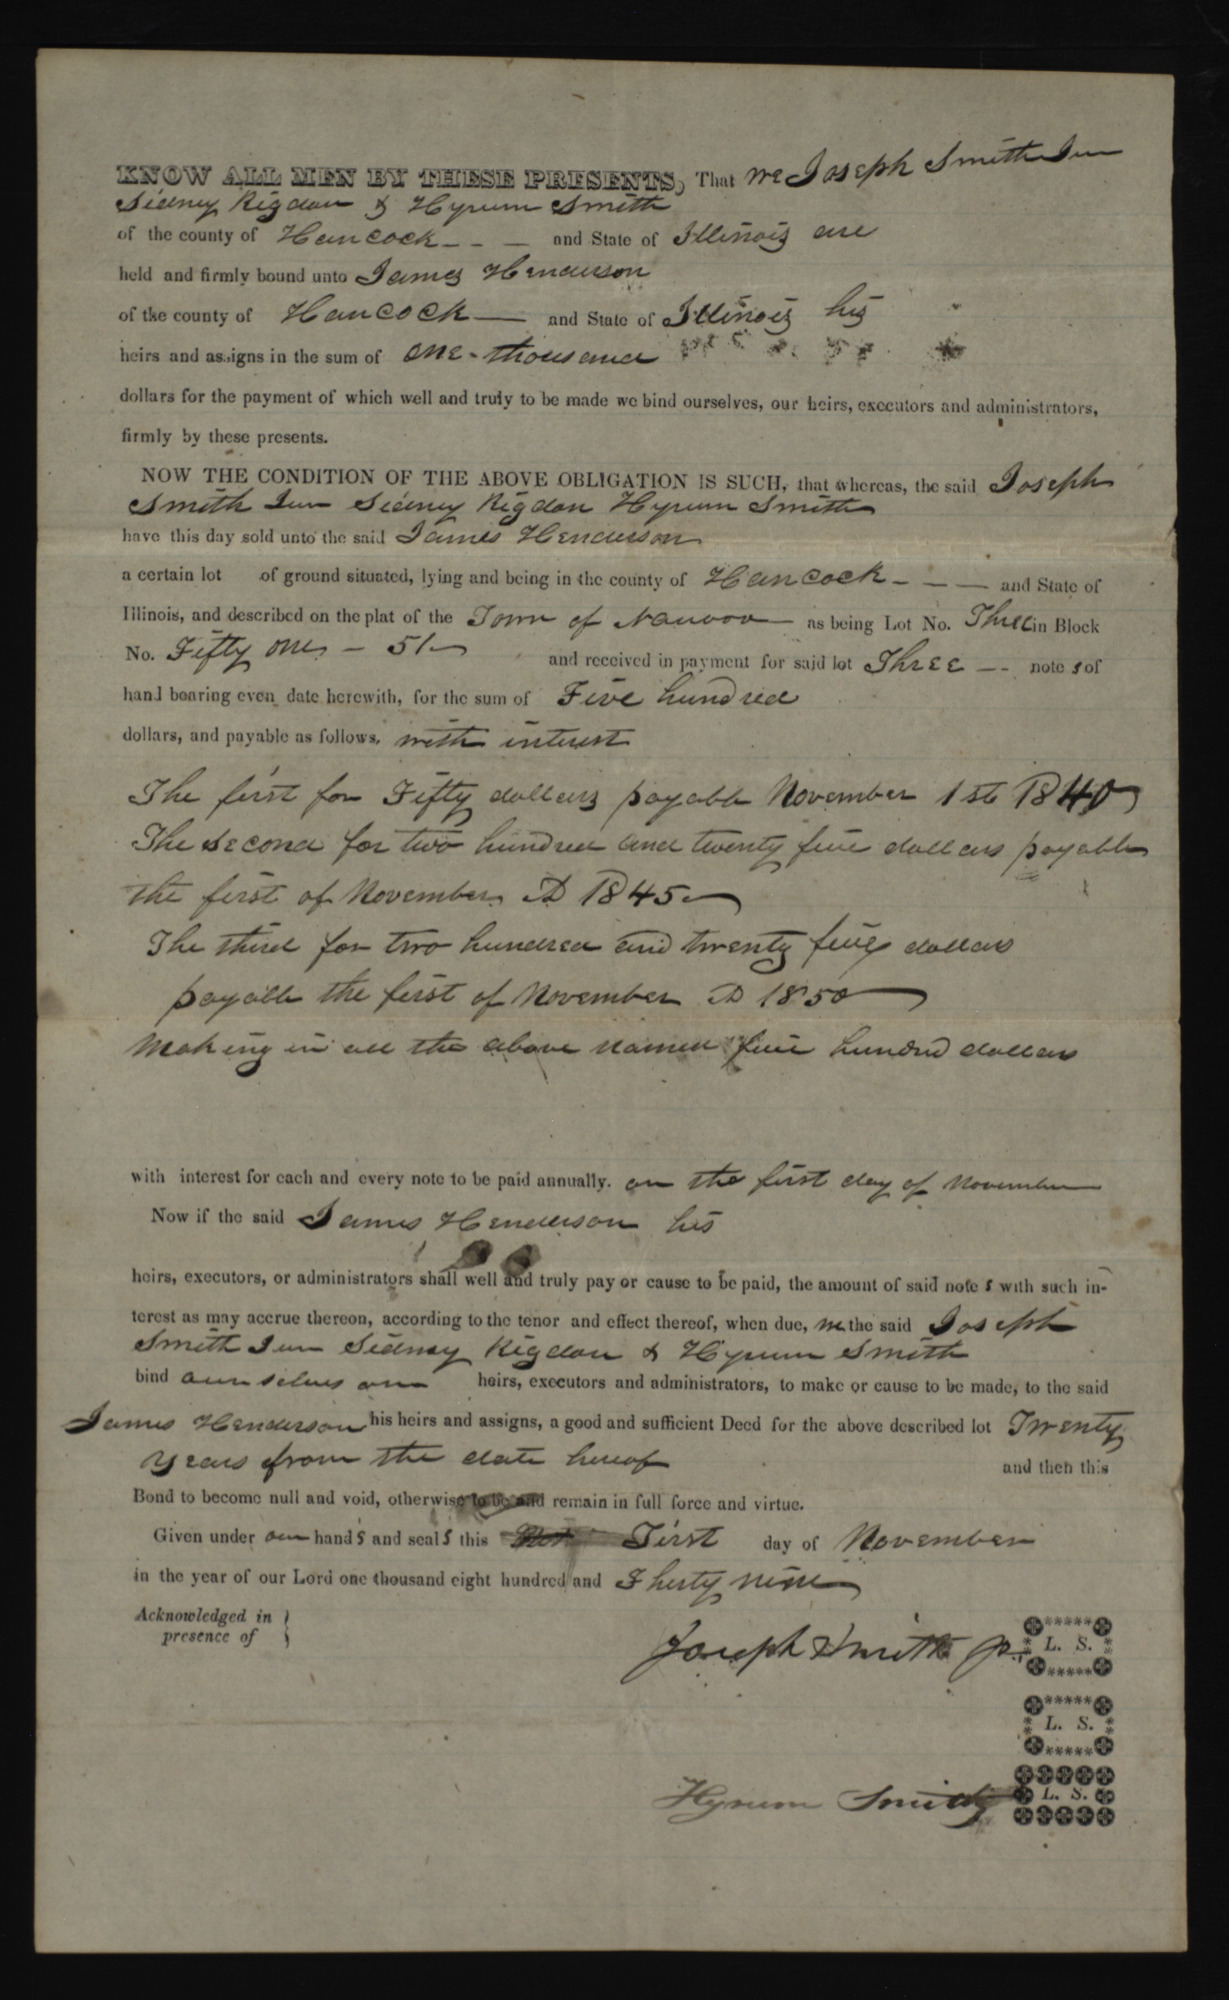 KNOW ALL MEN BY THESE PRESENTS, That we Joseph Smith Jun
Sidney Rigdon & Hyrum Smith
of the county of Hancock - - - and State of Illinois are
held and firmly bound unto James Henderson
of the county of Hancock — and State of Illinois his
heirs and assigns in the sum of one - thousand
dollars for the payment of which well and truly to be made we bind ourselves, our heirs, executors and administrators,
firmly by these presents.
NOW THE CONDITION OF THE ABOVE OBLIGATION IS SUCH, that whereas, the said Joseph
Smith Jun Sidney Rigdon Hyrum Smith
have this day sold unto the said James Henderson
a certain lot of ground situated, lying and being in the county of Hancock - - — and State of
Illinois, and described on the plat of the Town of Nauvoo — as being Lot No. Three in Block
No. Fifty one - 51 - and received in payment for said lot Three - - note s of
hand bearing even date herewith, for the sum of Five hundred
dollars, and payable as follows. with interest
The first for Fifty dollars payable November 1st 1840
The second for two hundred and twenty five dollars payable
the first of November AD 1845
The third for two hundred and twenty five dollars
payable the first of November AD 1850
Making in all the above named five hundred dollars
with interest for each and every note to be paid annually. on the first day of November
Now if the said James Henderson his
heirs, executors, or administrators shall well and truly pay or cause to be paid, the amount of said note s with such in-
terest as may accrue thereon, according to the tenor and effect thereof, when due, we the said Joseph
Smith Jun Sidney Rigdon & Hyrum Smith
bind ourselves our heirs, executors and administrators, to make or cause to be made, to the said
James Henderson his heirs and assigns, a good and sufficient Deed for the above described lot Twenty
years from the date hereof and then this
Bond to become null and void, otherwise to be and remain in full force and virtue.
Given under our hand s and seal s this First day of November
in the year of our Lord one thousand eight hundred and Thirty nine
Acknowledged in
presence of }
Joseph Smith Jr. L. S.
L. S.
Hyrum Smith L. S.